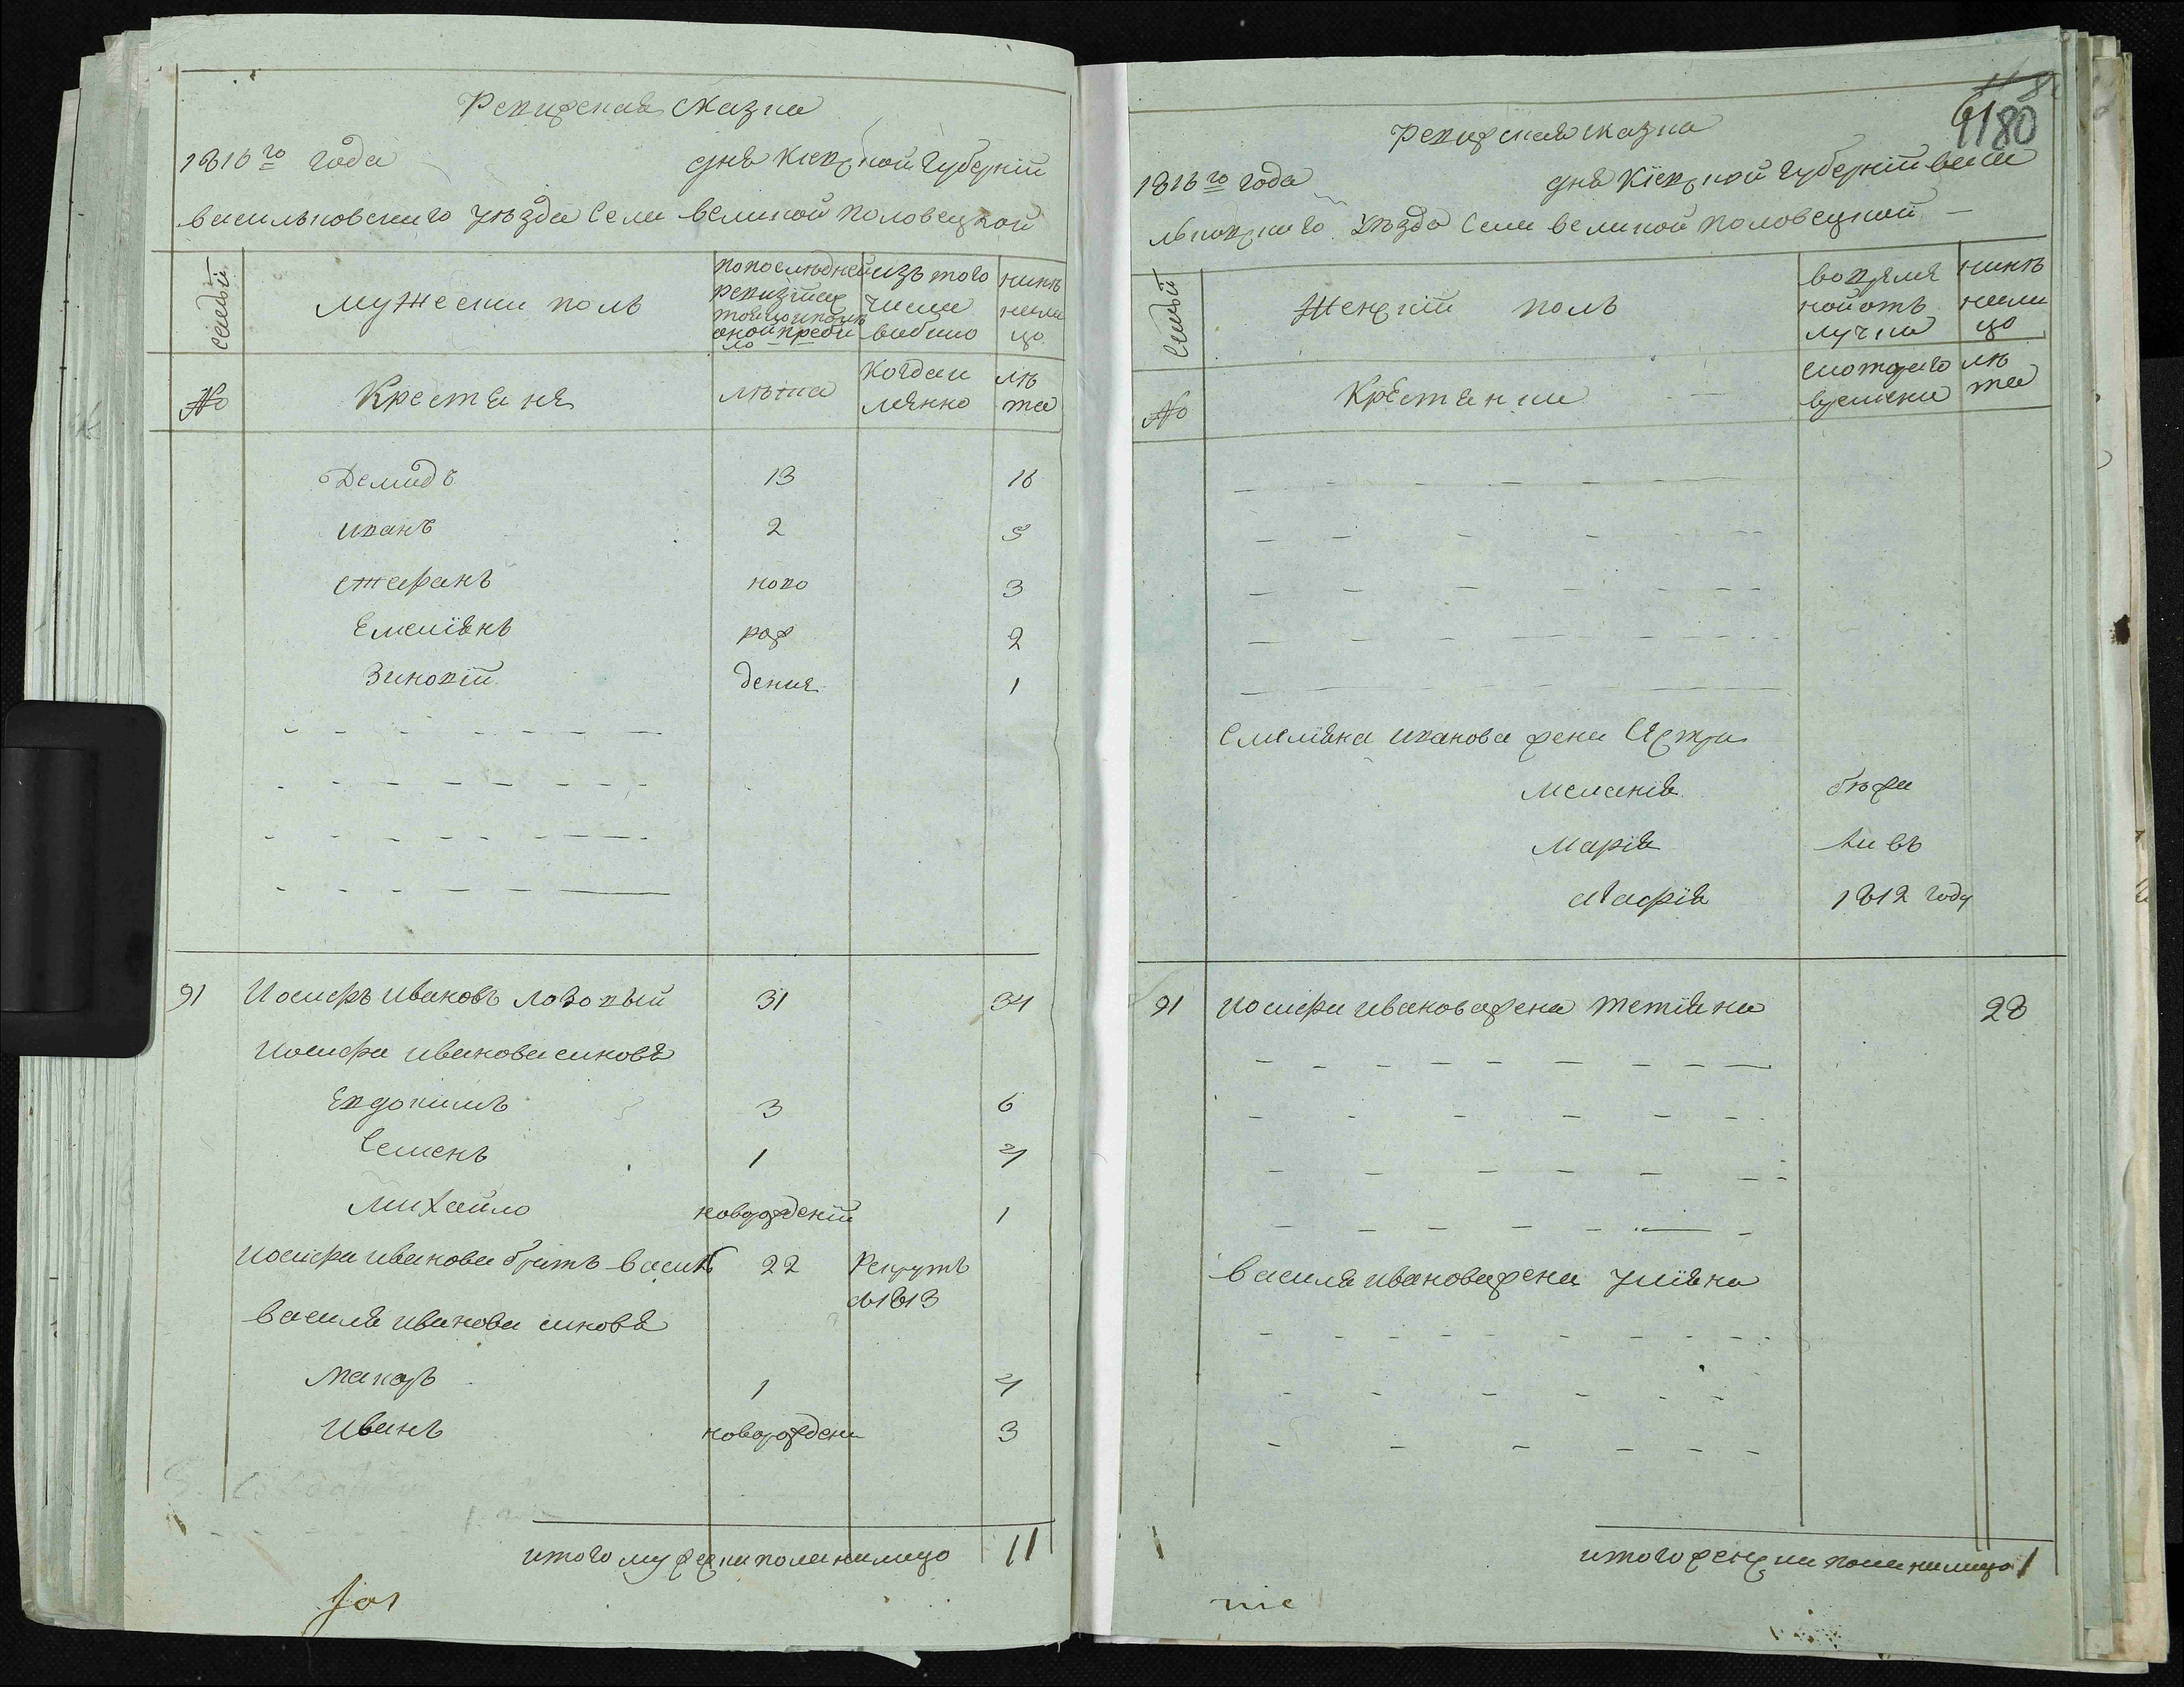 Ревизская сказка
1816го года дня Киевской Губернiи
васильковского уѣзда Села великой половецкой
семьи
мужески полъ
по последней ревизiи
изъ того числа выбыло
ныне на лицо
№
Крестяня
лѣта
Когда и
лѣта
Демидъ 13 16
иванъ 2 5
стефанъ ново 3
Емелiянъ рож 2
Зиновiй дения 1
91 Иосифъ ивановъ лозовый 31 34
Иосифа иванова синовя
Евдокимъ 3 6
Семенъ 1 4
михайло новорожденiй 1
иосифа иванова братъ василь 22 Рекрутъ
в1813
василя иванова синовя
макаръ 1 4
иванъ новорождени 3
итого мужеска пола налицо 11
jor
61
1180
Ревизская сказка
1816го года дня Кiевской губернiи васи
льковского уѣзда Села великой половецкой
семьи
Женскiй полъ
во время
ной отъ
лучки
ныне
нали
цо
№
Крестянки
с которого
времени
лѣ
та
Емелiяна иванова жена
меланiя бѣжа
марiя ли въ
агафiя 1812 году
91 иосифа иванова жена тетiяна 28
василя иванова жена улiяна
итого женска пола налицо 1
nie